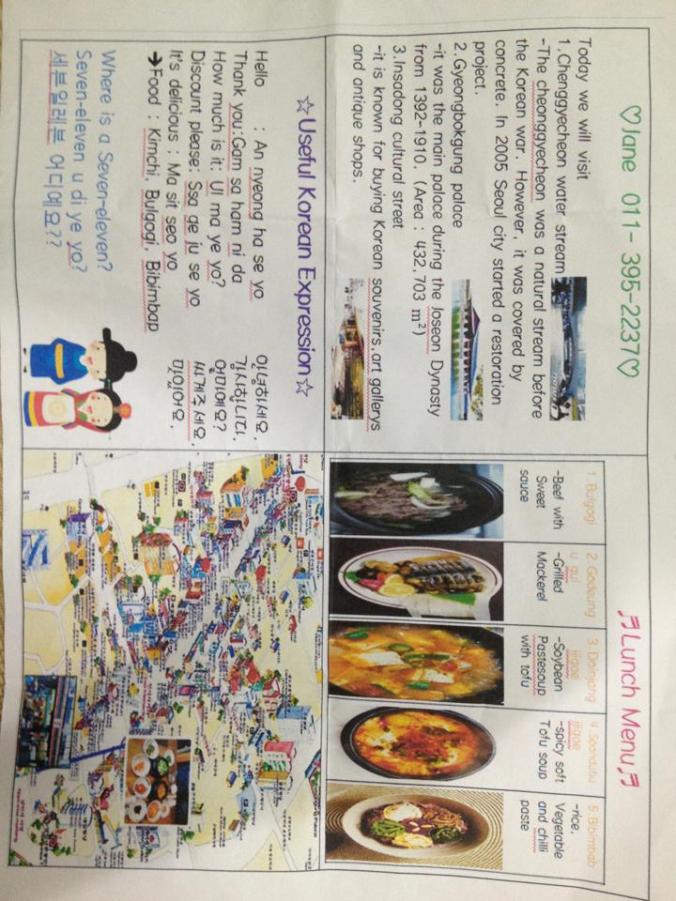 ♡Jane 011- 395-2237♡
Today we will visit
1.Chenggyecheon water stream
-The cheonggyecheon was a natural stream before
the Korean war. However, it was covered by
concrete. In 2005 Seoul city started a restoration
project.
2.Gyeongbokgung palace
-it was the main palace during the Joseon Dynasty
from 1392-1910. (Area : 432,703 m²)
3.Insadong cultural street
-it is known for buying Korean souvenirs,art gallerys
and antique shops.
♬Lunch Menu♬
1. Bulgogi
-Beef with
Sweet
sauce
2. Godeung
u gui
-Grilled
Mackerel
3.Doenjang
jjigae
-Soybean
Pastesoup
with tofu
4.Soondubu
jjigae
-spicy soft
Tofu soup
5.Bibimbab
-rice,
Vegetable
and chilli
paste
☆Useful Korean Expression☆
Hello : An nyeong ha se yo 안녕하세요.
Thank you:Gam sa ham ni da 감사합니다.
How much is it: Ul ma ye yo? 얼마예요?
Discount please: Ssa ge ju se yo 싸게주세요.
It's delicious : Ma sit seo yo 맛있어요.
➔Food : Kimchi, Bulgogi, Bibimbap
Where is a Seven-eleven?
Seven-eleven u di ye yo?
세븐일레븐 어디예요??